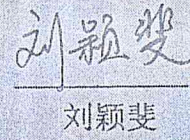 刘颖斐
刘颖斐